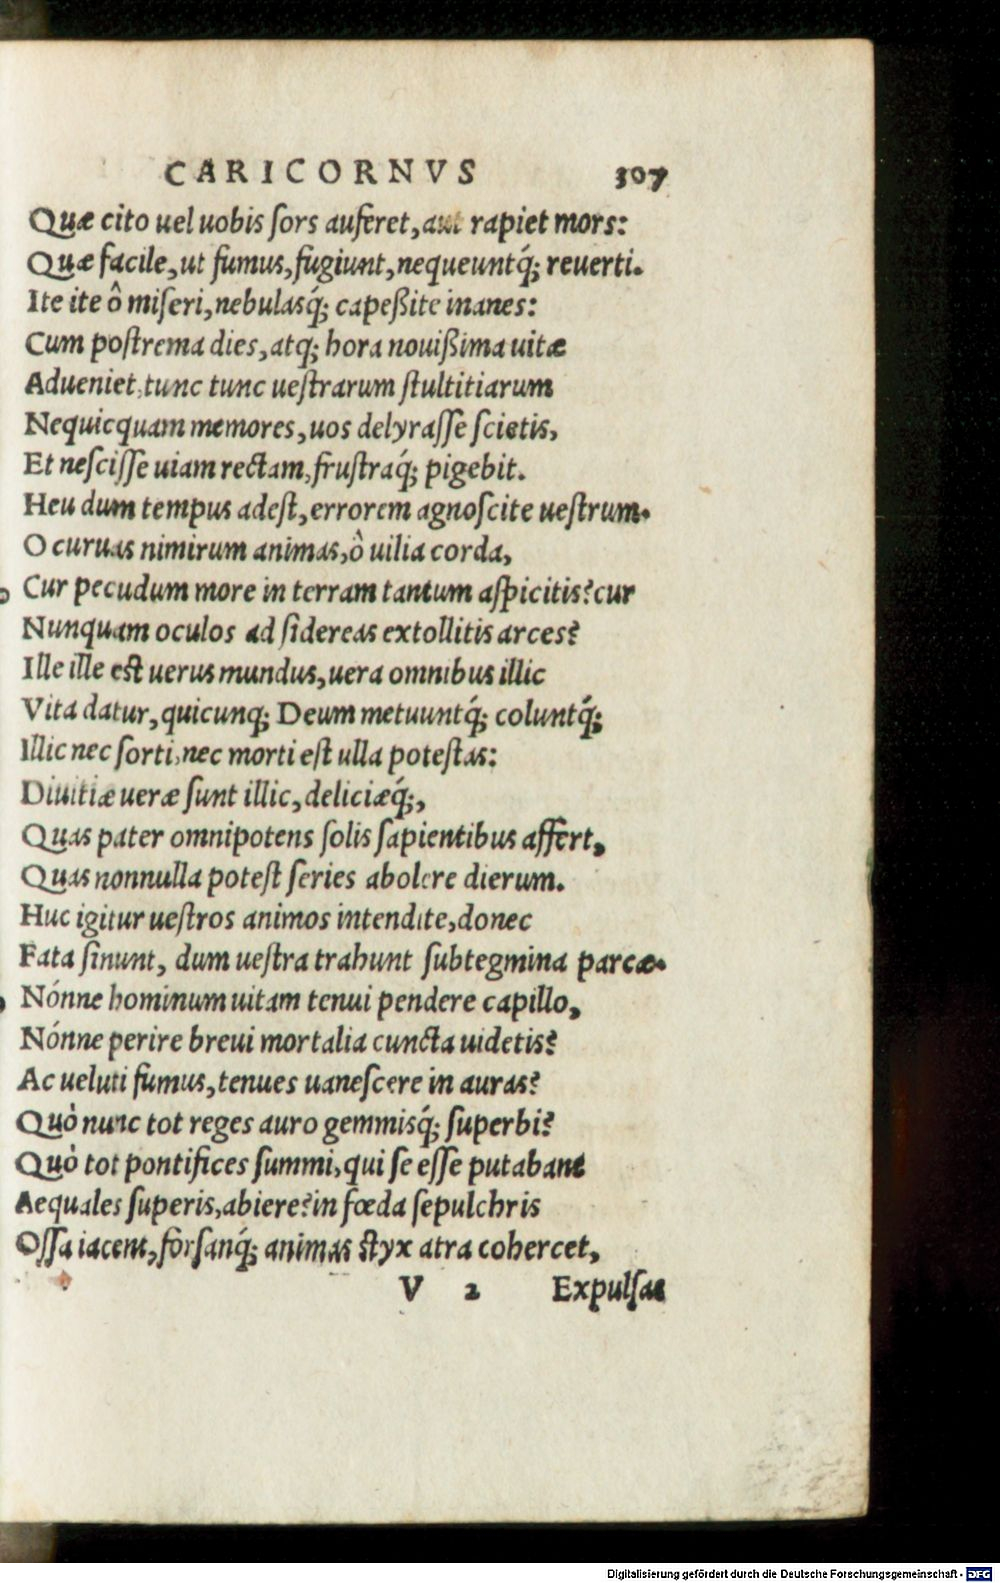 CARICORNVS 307
Quæ cito uel uobis ſors auferet, aut rapiet mors:
Quæ facile, ut fumus, fugiunt, nequeuntq́; reuerti.
Ite ite ô miſeri, nebulasq́; capeßite inanes:
Cum poſtrema dies, atq; hora nouißima uitæ
Adueniet, tunc tunc ueſtrarum ſtultitiarum
Nequicquam memores, uos delyraſſe ſcietis,
Et neſciſſe uiam rectam, fruſtraq́; pigebit.
Heu dum tempus adeſt, errorem agnoſcite ueſtrum.
O curuas nimirum animas, ô uilia corda,
Cur pecudum more in terram tantum aſpicitis? cur
Nunquam oculos ad ſidereas extollitis arces?
Ille ille eſt uerus mundus, uera omnibus illic
Vita datur, quicunq; Deum metuuntq́; coluntq́;
Illic nec ſorti, nec morti eſt ulla poteſtas:
Diuitiæ ueræ ſunt illic, deliciæq́;,
Quas pater omnipotens ſolis ſapientibus affert,
Quas nonnulla poteſt ſeries abolere dierum.
Huc igitur ueſtros animos intendite, donec
Fata ſinunt, dum ueſtra trahunt ſubtegmina parcæ.
Nónne hominum uitam tenui pendere capillo,
Nónne perire breui mortalia cuncta uidetis?
Ac ueluti fumus, tenues uaneſcere in auras?
Quò nunc tot reges auro gemmisq́; ſuperbi?
Quò tot pontifices ſummi, qui ſe eſſe putabant
Aequales ſuperis, abiere? in fœda ſepulchris
Oſſa iacent, forſanq́; animas ſtyx atra cohercet,
V 2 Expulſae
Digitalisierung gefördert durch die Deutsche Forschungsgemeinschaft - DFG